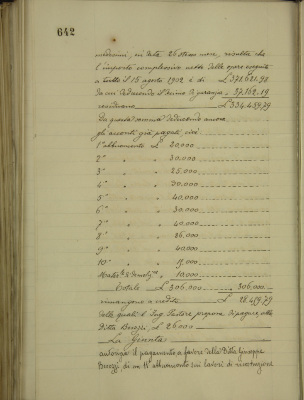 642
medesimi, in data 26 stesso mese, risulta che
l'importo complessivo netto delle opere eseguite
a tutto il 15 agosto 1912 è di £ 371.621.98
da cui deducendo il decimo di garanzia " 37.162.19
rimangono £ 334.459.79
Da questa somma deducendo ancora
gli acconti già pagati, cioè:
1° abbuonamento £ 20,000
2° " " 30.000
3° " " 25,000
4° " "
5° " " 40,000
6° " " 30,000
7° " " 40,000
8° " " 36,000
9° " " 40,000
10° " "
10,000
Totale £ 306,000 306,000
rimangono a credito £ 28.459.79
delle quali l'Ing. propone di pagare alla
Ditta £ 26000
La Giunta
autorizza il pagamento a favore della Ditta Giuseppe
di un 11° abbuonamento sui lavori di